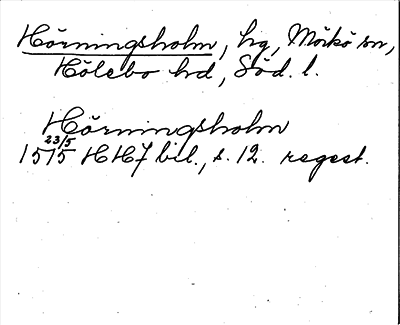 Hörningsholm, hg, Mörkö sn,
Hölebo hd, Söd. l.
Hörningsholm
1515 23/5 HH7 bil., s. 12. regest.